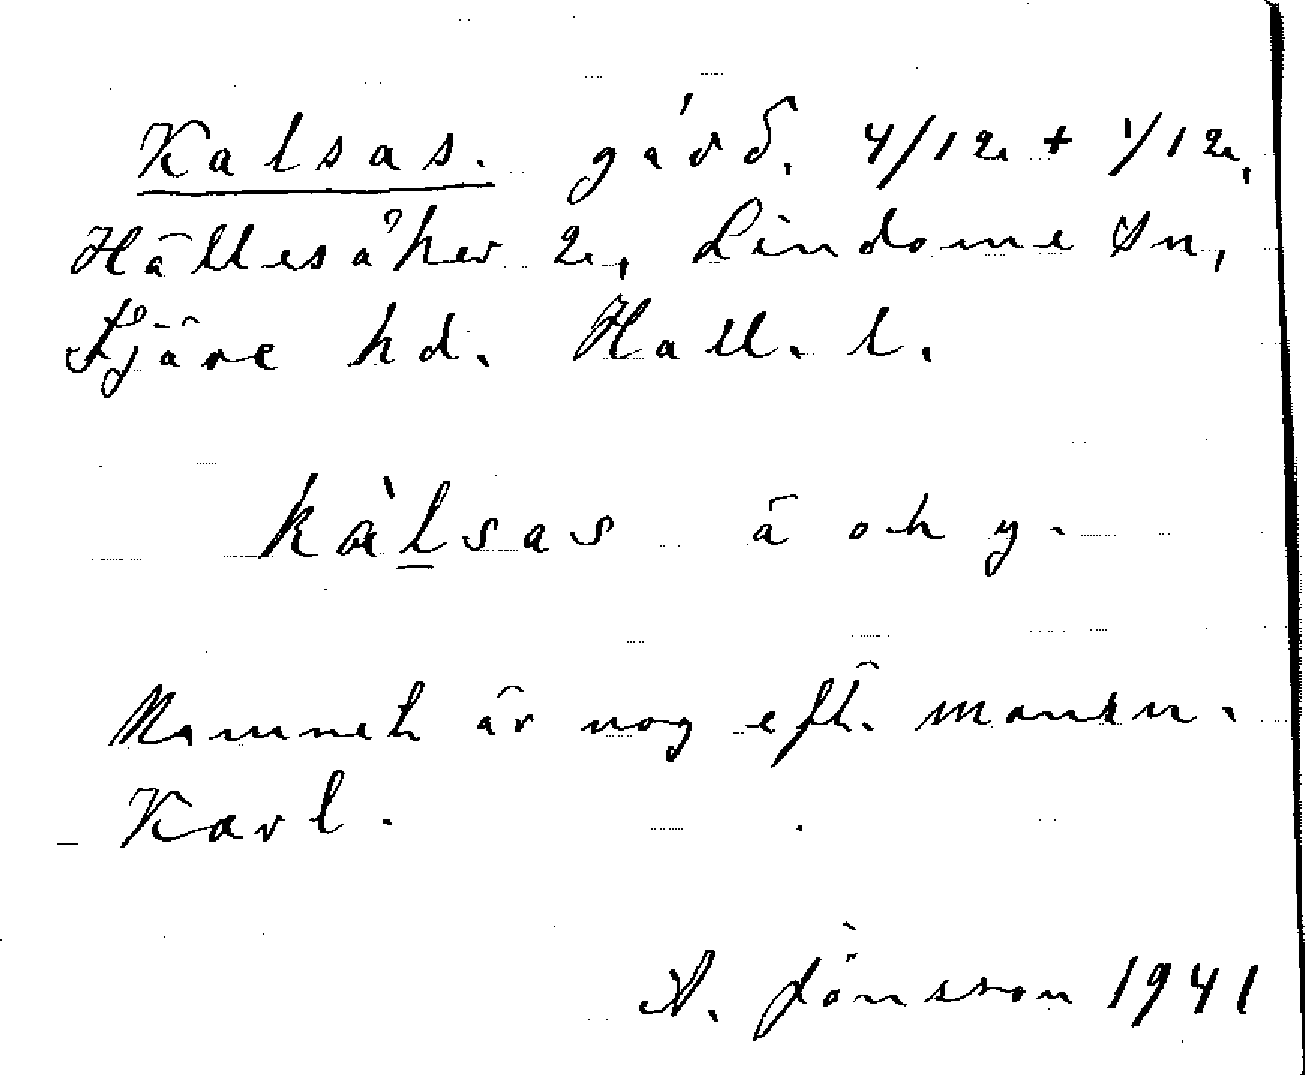 Kalsas. gård. 4/12 + 1/12,
Hällesåker 2, Lindome sn,
Fjäre hd. Hall. l.
kàlsas ä och y.
Namnet är nog eft. mansn.
Karl.
A. Jönsson 1941